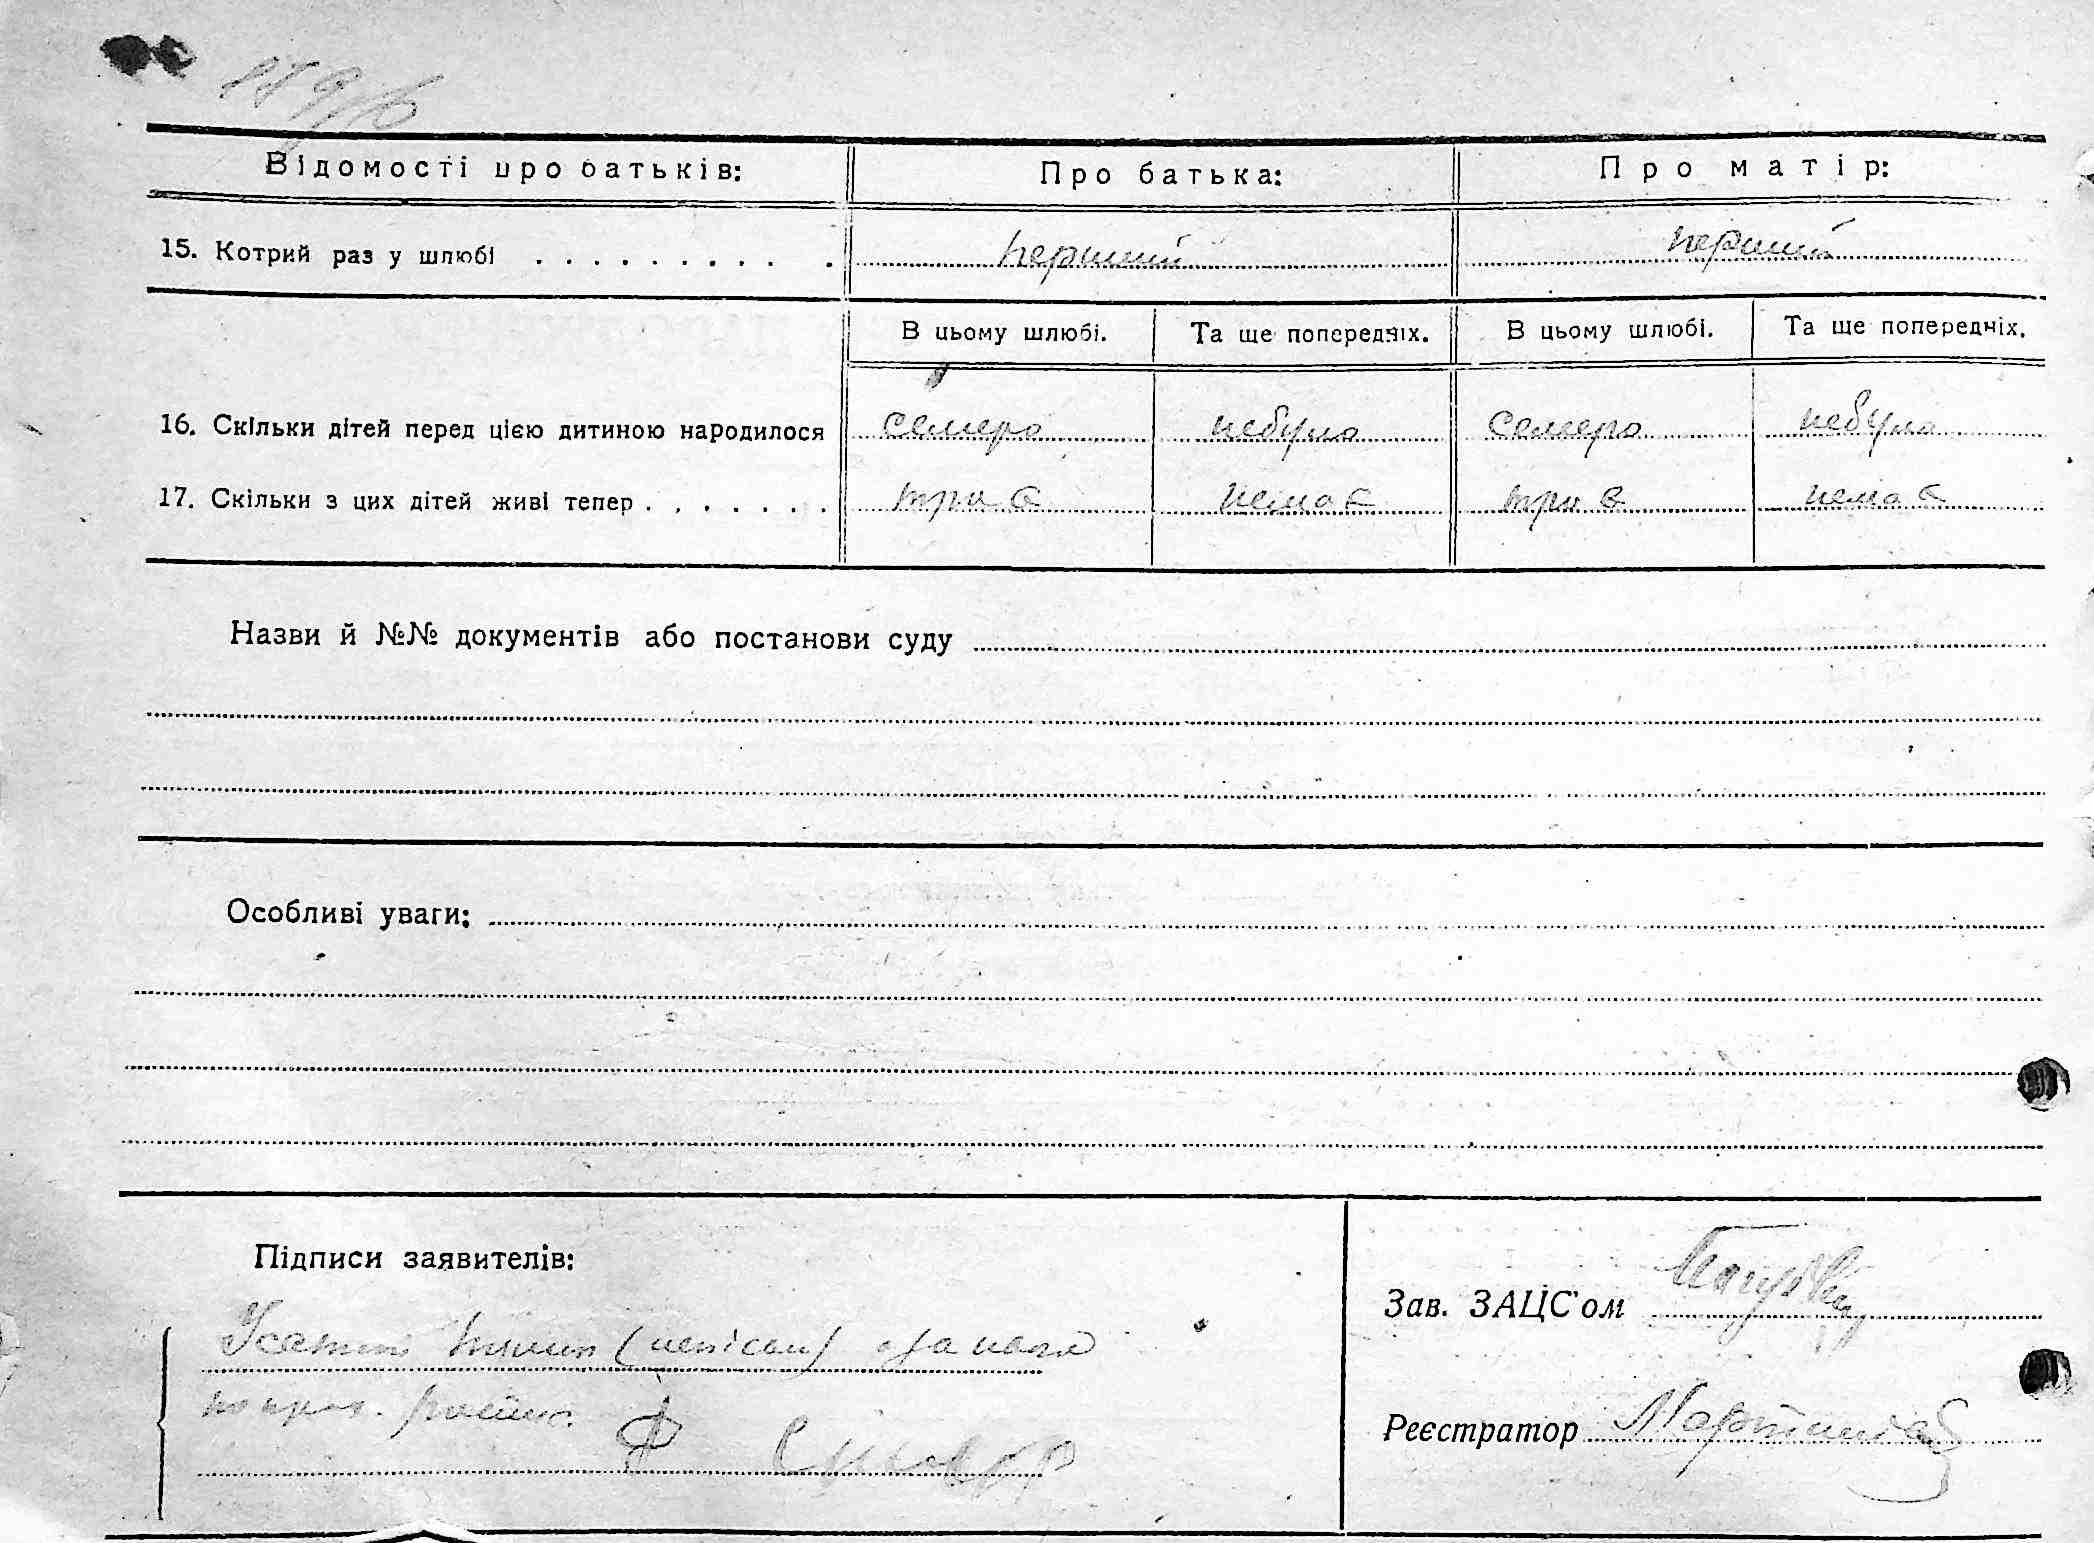 Відомості про батьків: Про батька: Про матір:
15. Котрий раз у шлюбі . . . . . . . . . . перший перший
В цьому шлюбі. Та ще попередніх. В цьому шлюбі. Та ще попередніх.
16. Скільки дітей перед цією дитиною народилося семеро небуло семеро небуло
17. Скільки з цих дітей живі тепер . . . . . . . троє немає троє немає
Назви й №№ документів або постанови суду
Особливі уваги:
Підписи заявителів:
Зав. ЗАЦС'ом
(неписм) за нея
Реєстратор